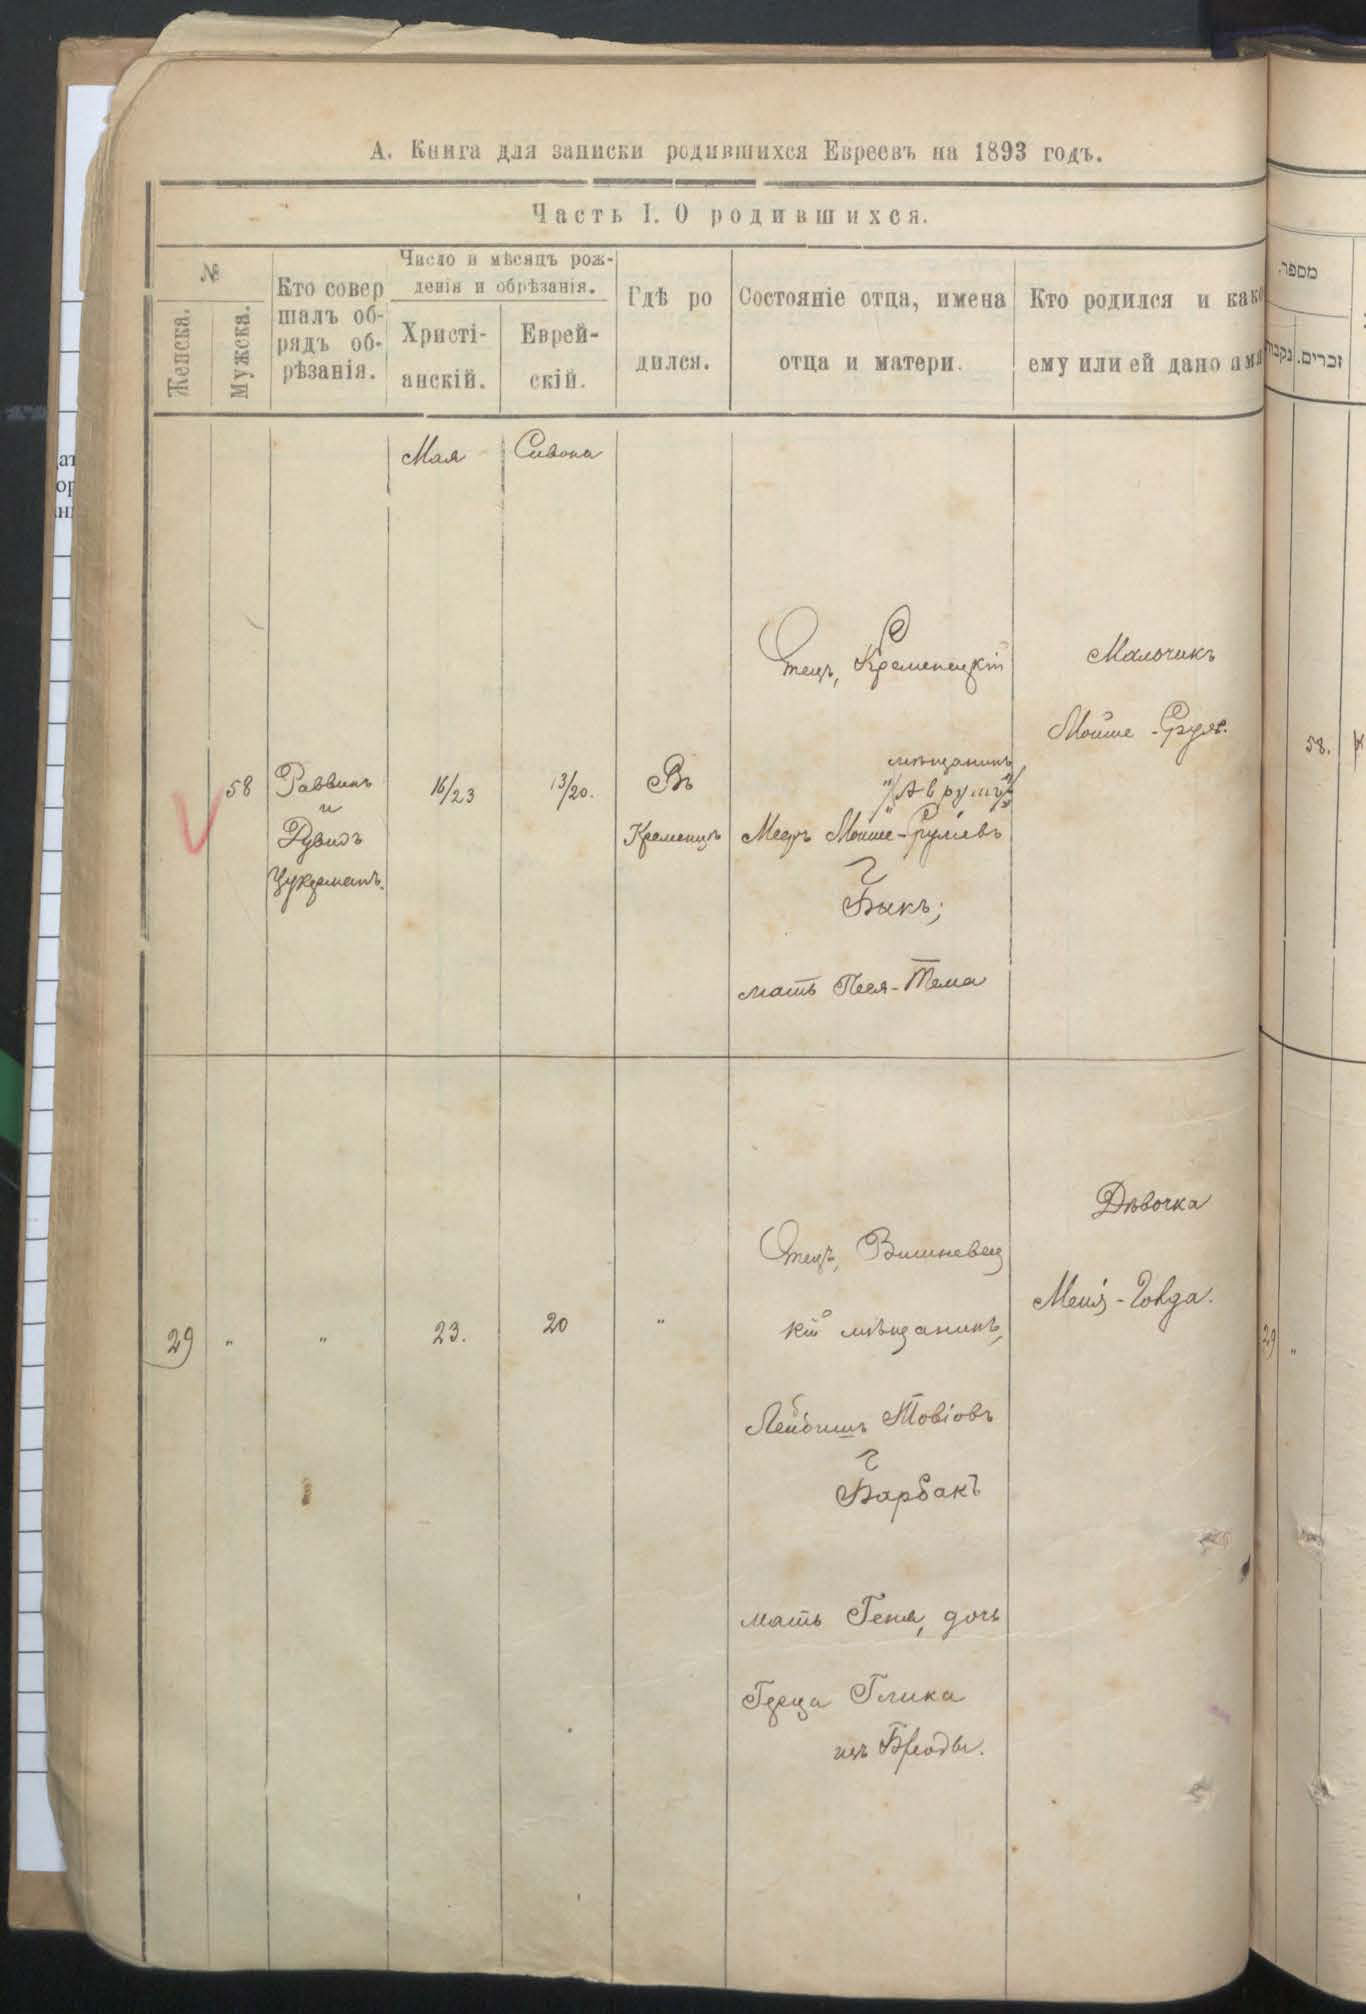 А. Книга для записки родившихся Евреевъ на 1893 годъ.
Часть I. О родившихся.
№
Женска.
Мужска.
Кто совер
шалъ об-
рядъ об-
рѣзанія.
Число и мѣсяцъ рож-
денія и обрѣзанія.
Христі-
анскій.
Еврей-
скій.
Гдѣ ро
дился.
Состояніе отца, имена
отца и матери.
Кто родился и како
ему или ей дано имя
Мая
Сивона
58
Раввинъ
и
Дувидъ
Цукерманъ.
16/23
13/20.
Въ
Кременцѣ
Отецъ, Кременецкій
мѣщанинъ
"/Аврумъ"/
Мееръ Мойше-Срулевъ
Быкъ;
мать Песя-Тема
Мальчикъ
Мойше-Сруль.
29
"
"
23.
20
"
Отецъ, Вишневец
кій мѣщанинъ,
Лейбишъ Товіовъ
Барбакъ
мать Геня, дочь
Глика
изъ Броды.
Дѣвочка
Меня-Човда.
מספר.
נקבות
זכרים.
58.
29
"